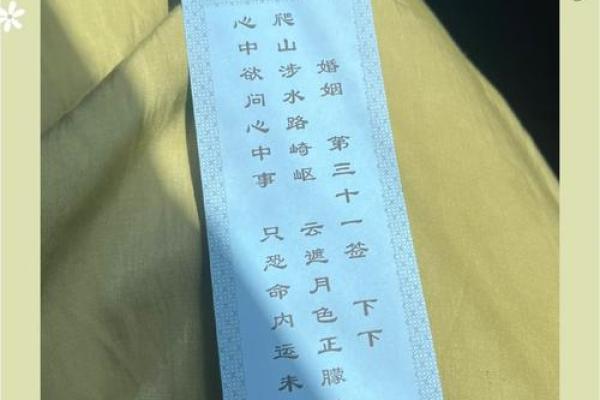 婚姻 第三十一签 下下
爬山涉水路崎岖 云遮月色正朦
心中欲问心中事 只恐命内运未